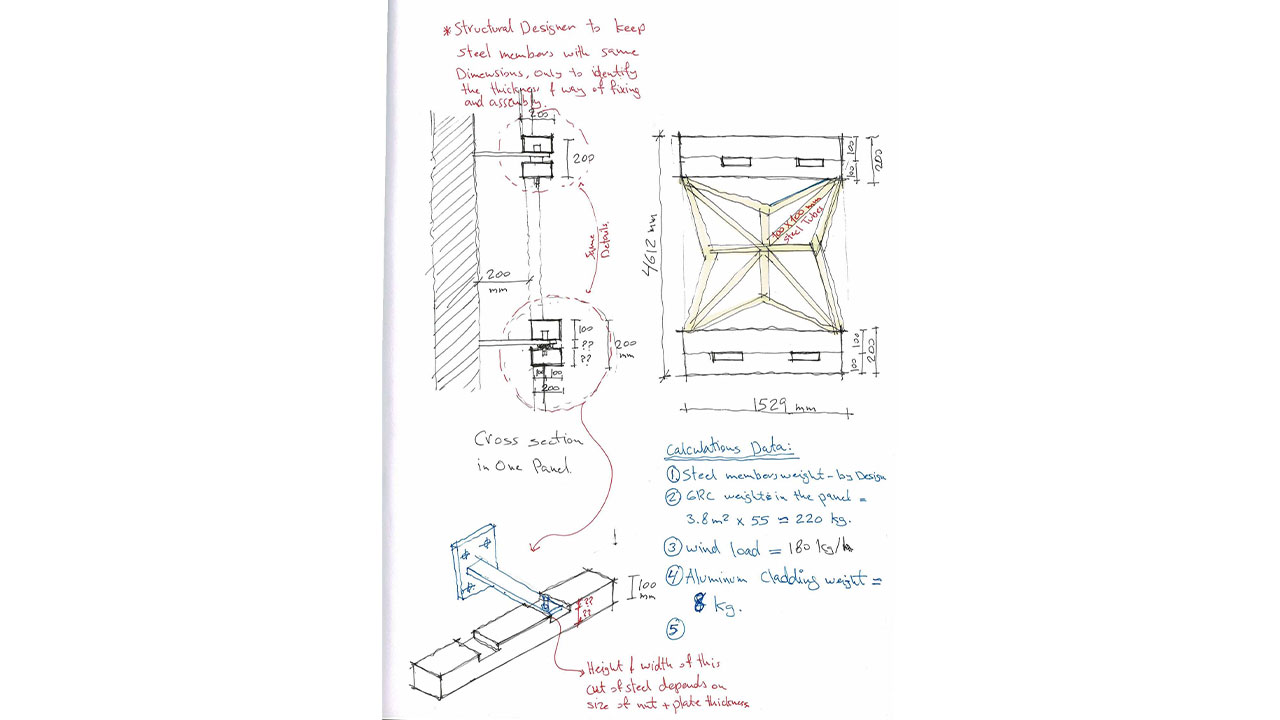 * Structural Designer to keep
steel members with same
Dimensions, only to identify
the thickness & way of fixing
and assembly.
200
200
Same
Details
200
mm
100
??
??
200
mm
100 100
200
Cross section
in One Panel.
100
100
200
4612 mm
100 x 100 mm
Steel Tubes
100
100
200
1529 mm
Calculations Data:
① Steel members weight - by Design
② GRC weight in the panel =
3.8 m² x 55 = 220 kg.
③ wind load = 180 kg/
④ Aluminum Cladding weight =
8 kg.
⑤
100
mm
??
??
Height & width of this
cut of steel depends on
size of nut + plate thickness